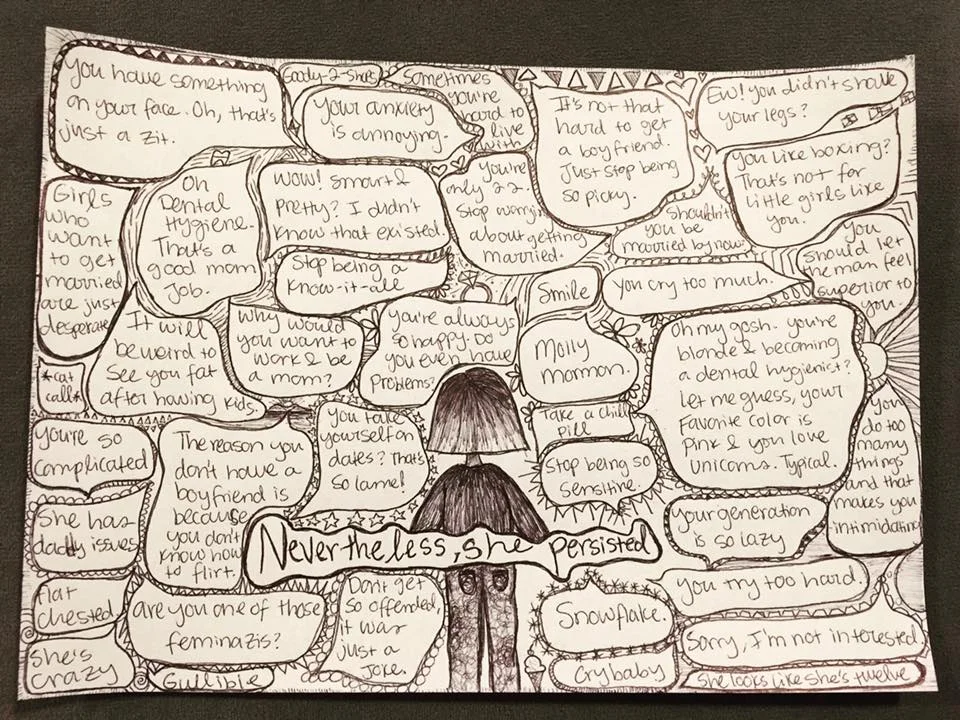 You have something
on your face. Oh, that's
just a zit.
Goody-2-shoes
Your anxiety
is annoying.
Sometimes
you're
hard to
live
with
It's not that
hard to get
a boyfriend.
Just stop being
so picky.
Ew! You didn't shave
your legs?
You like boxing?
That's not for
little girls like
you.
Girls
who
want
to get
married
are just
desperate
Oh
Dental
Hygiene.
That's a
good mom
job.
Wow! Smart &
Pretty? I didn't
know that existed.
Stop being a
know-it-all
You're
only 22.
Stop worrying
about getting
married.
Shouldn't
you be
married by now?
You
should let
the man feel
superior to
you.
Smile
You cry too much.
It will
be weird to
see you fat
after having kids.
Why would
you want to
work & be
a mom?
You're always
so happy. Do
you even have
Problems?
Molly
Mormon.
Oh my gosh. You're
blonde & becoming
a dental hygienist?
Let me guess, your
favorite color is
pink & you love
unicorns. Typical.
*cat
calls*
You're so
complicated
The reason you
don't have a
boyfriend is
because
you don't
know how
to flirt.
You take
yourself on
dates? That's
so lame!
Take a chill
pill
Stop being so
sensitive.
You
do too
many
things
and that
makes you
intimidating
She has
daddy issues
Your generation
is so lazy
Nevertheless, she persisted
flat
chested
are you one of those
feminazis?
Don't get
so offended,
it was
just a
joke.
Snowflake.
You try too hard.
Sorry, I'm not interested.
She's
crazy
Gullible
Crybaby
She looks like she's twelve